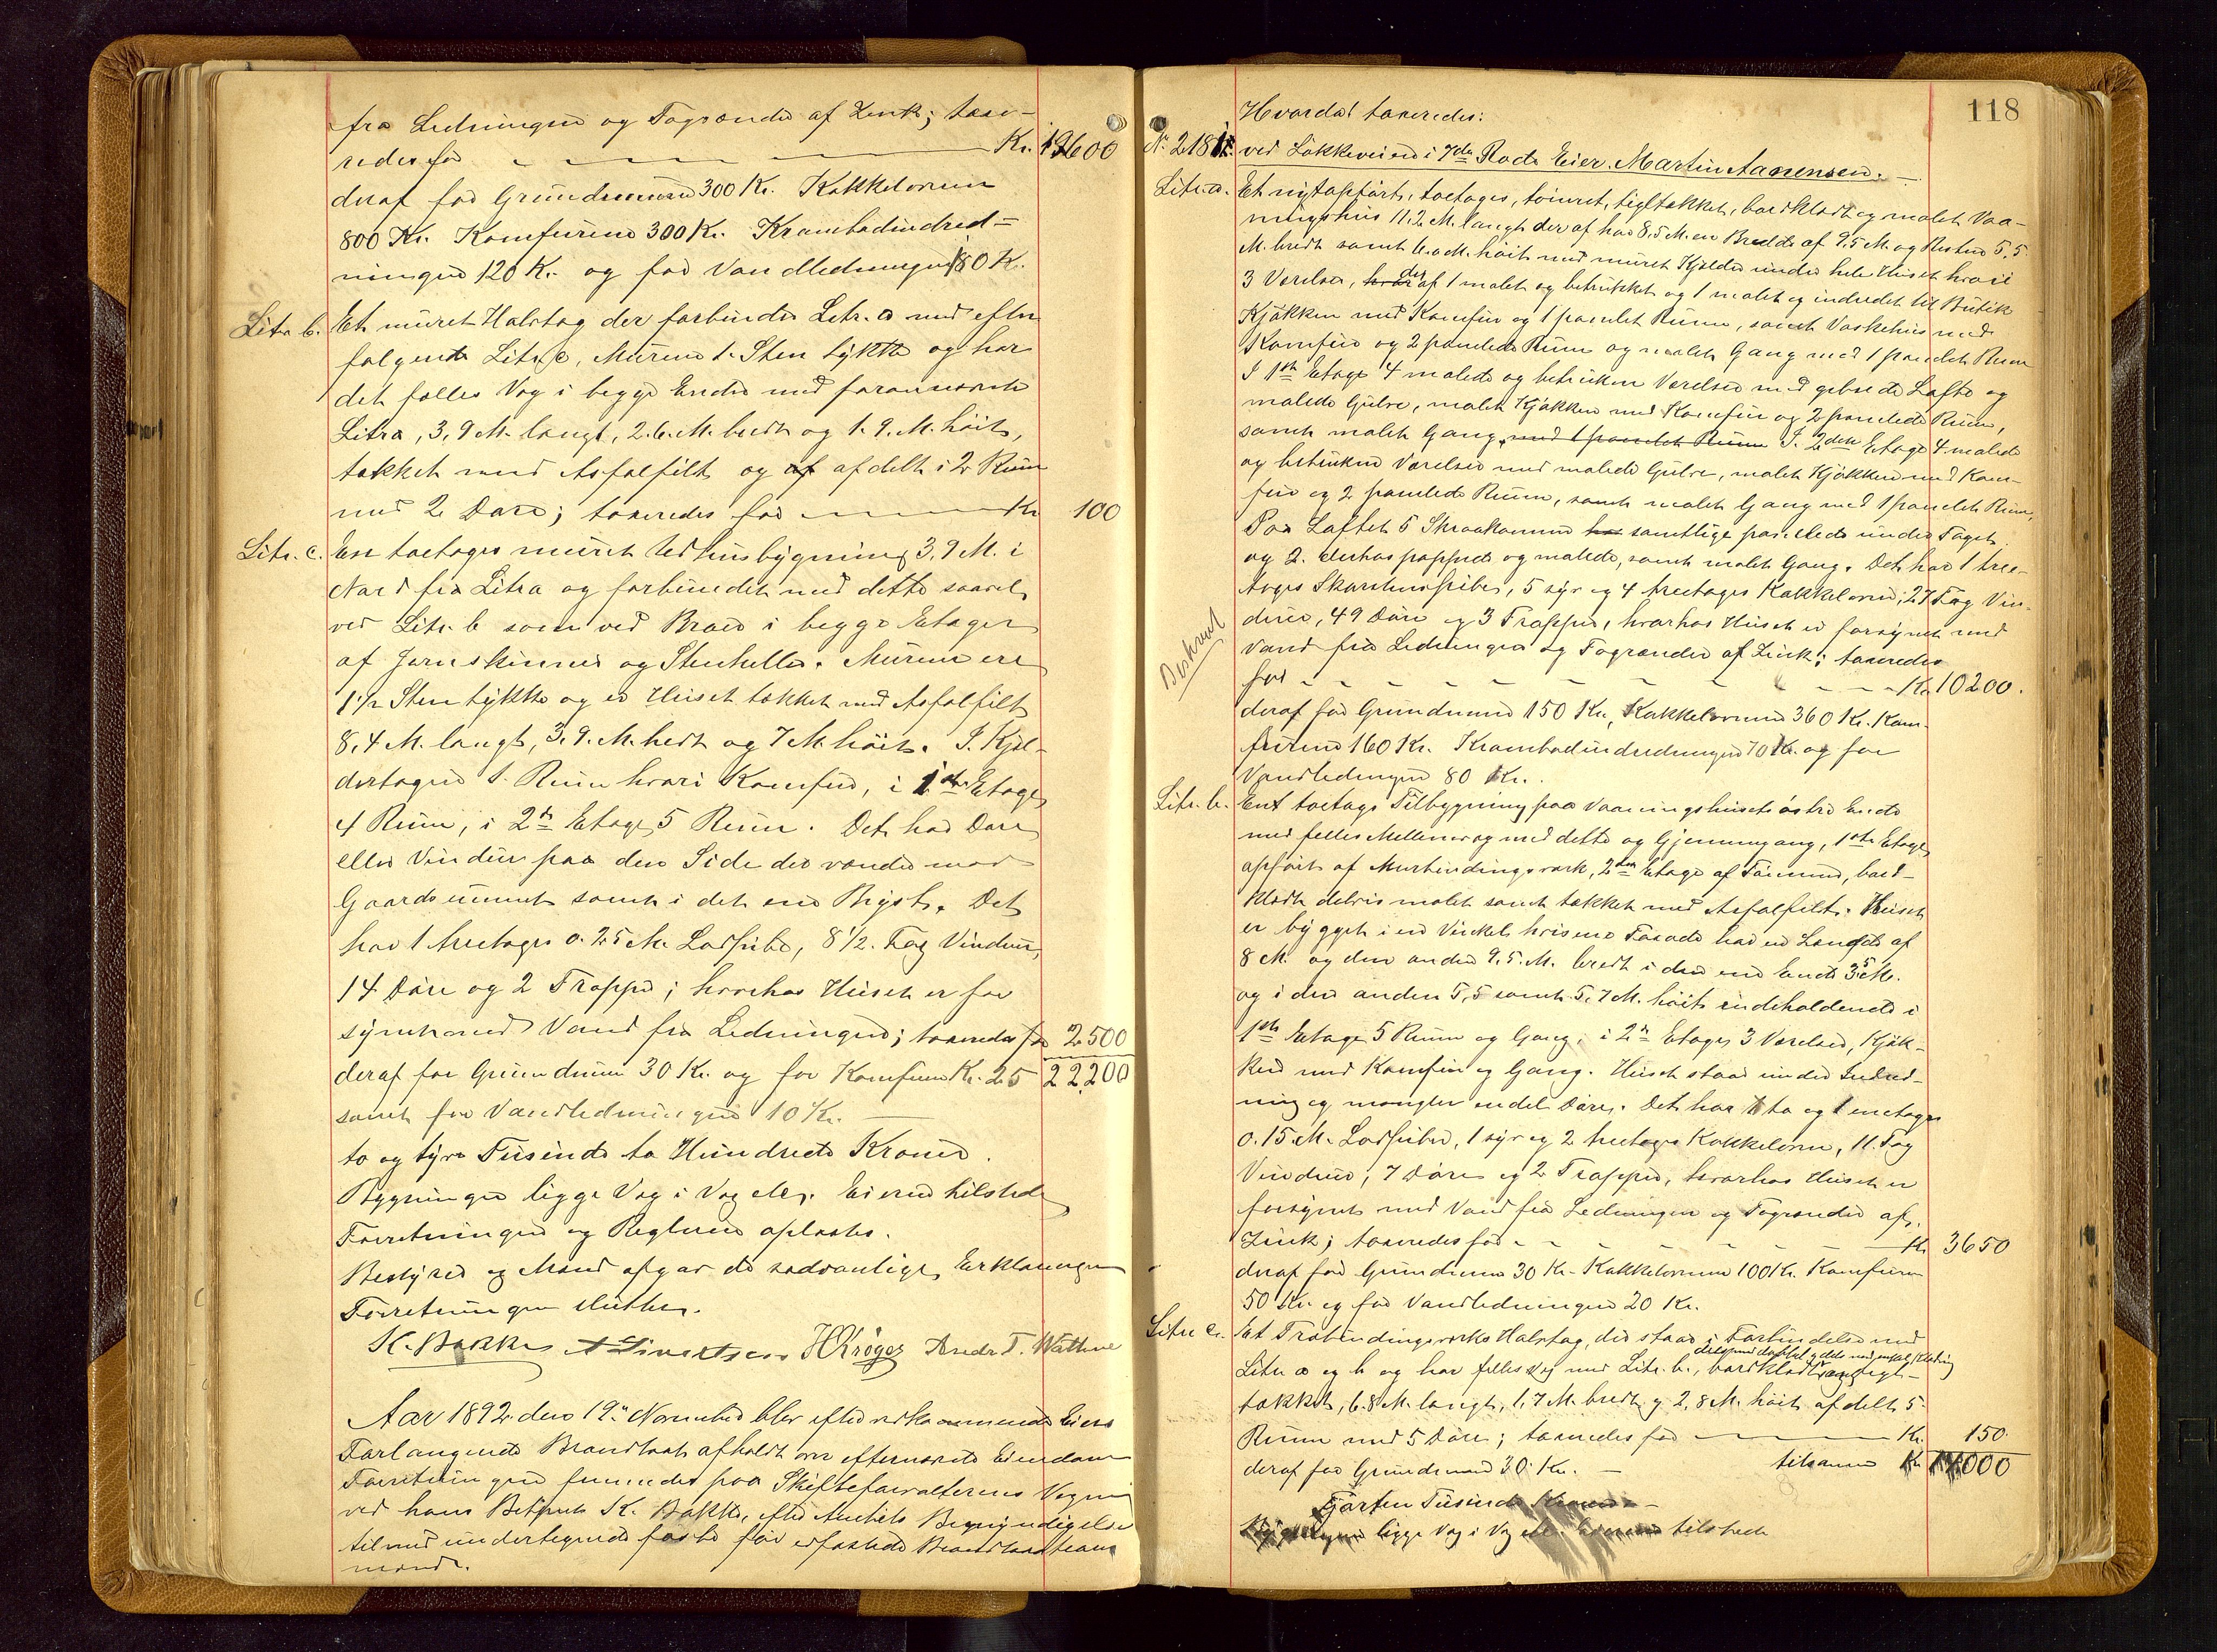 fra Ledningen og Tagrender af Zink; taxe-
redes for — — — Kr. 19600
deraf for Grundmuren 300 Kr. Kakkelovnene
800 Kr. Komfurene 300 Kr. Krambodindred-
ningen 120 Kr. og for Vandledningen 80 Kr.
Litr. b. Et muret Halvtag der forbinder Litr. a med efter
følgende Litr. c, Murene 1 Sten tykke og har
det fælles Væg i begge Ender med forannævnte
Litra, 3,9 M. langt, 2.6. M. bredt og 1.9. M. høit,
tækket med Asfalfilt og af afdelt i 2 Rum
med 2 Døre; taxeredes for — — — Kr 100
Litr. c. En toetages muret Udhusbygning 3,9 M. i
Nord fra Litr a og forbundet med dette saavel
ved Litr. b som ved Broer i begge Etager
af Jernskinner og Stenheller. Murene ere
1 1/2 Sten tykke og er Huset tækket med Asfalfilt
8,4 M. langt, 3,9. M. bredt og 7 M. høit. I Kjæl-
deretagen 1. Rum hvori Komfur, i 1ste Etage
4 Rum, i 2den Etage 5 Rum. Det har Døre
eller Vinduer paa den Side der vender mod
Gaardsrummet samt i det ene Bryst. Det
har 1 treetages 0.25 M. Lodpibe, 8 1/2. Fag Vinduer,
14 Døre og 2 Trapper; hvorhos Huset er for
synet med Vand fra Ledningen; taxeredes for 2500
deraf for Grundmuren 30 Kr. og for Komfuren Kr. 25 22200
samt for Vandledningen 10 Kr.
to og tyve Tusinde to Hundrede Kroner.
Bygningen ligge Væg i Væg etc. Eieren tilstede
Forretningen og Reglerne oplæstes.
Bestyrer og Mænd afgav de sædvanlige Erklæringer
Forretningen sluttet.
K. Bakke A Sivertsen H Krøger Andr. T. Wathne
Aar 1892 den 19de November blev efter vedkommende Eiers
Forlangende Brandtaxt afholdt over efternævnte Eiendom
Forretningen fremmedes paa Skifteforvalterens Vegne
ved hans Betjent K. Bakke, efter Amtets Bemyndigelse
tilmed undertegnede faste før edfæstede Brandtaxations
mænd.
118
Hvorda! taxeredes:
N. 218 ved Løkkeveien i 7de Rode Eier. Martin Aanensen. —
Litr. a. Et nytopført, toetages, tømret, tigltækket, bordklædt og malet Vaa-
ningshus 11.2 M. langt der af har 8.5 M. en Bredde af 9.5 M. og Resten 5,5
M. bredt samt 6.0 M. høit med muret Kjælder under hele Huset hvori
3 Værelser, hvor der af 1 malet og betrukket og 1 malet og indredet til Butik
Kjøkken med Komfur og 1 panelet Rum, samt Vaskehus med
Komfur og 2 panelede Rum og malet Gang med 1 panelet Rum
I 1ste Etage 4 malede og betrukne Værelser med gibsede Lofte og
malede Gulve, malet Kjøkken med Komfur og 2 panelede Rum,
samt malet Gang, med 1 panelet Rum I. 2den Etage 4 malede
og betrukne Værelser med malede Gulve, malet Kjøkken med Kom-
fur og 2 panelede Rum, samt malet Gang med 1 panelet Rum,
Paa Loftet 5 Skraakammer har samtlige panelede under Taget
og 2. derhos pappede og malede, samt malet Gang. Det har 1 tree-
tages Skorstenspibe, 5 syv og 4 treetages Kakkelovne, 27 Fag Vin-
duer, 49 Døre og 3 Trapper, hvorhos Huset er forsynet med
Vand fra Ledningen og Tagrender af Zink; taxeredes
for — — — Kr 10200.
Beskrevet
deraf for Grundmuren 150 Kr, Kakkelovnene 360 Kr. Kom-
furene 160 Kr. Krambodindredningen 70 Kr. og for
Vandledningen 80 Kr.
Litr. b. Ent toetages Tilbygning paa Vaaningshusets østre Ende
med fælles Mellemvæg med dette og Gjennemgang, 1ste Etage
opført af Murbindingsværk, 2den Etage af Tømmer, bord-
klædt delvis malet samt tækket med Asfalfilt. Huset
er bygget i en Vinkel hvis ene Facade har en Længde af
8 M. og den anden 9.5. M. bredt i den ene Ende 3,5 M.
og i den anden 5,5 samt 5,7 M. høit indeholdende i
1ste Etage 5 Rum og Gang, i 2den Etage 3 Værelser, Kjøk-
ken med Komfur og Gang. Huset staar under Indred-
ning og mangler endel Døre. Det har 1 to og 1 enetages
0.15 M. Lodpiber, 1 syv og 2 treetages Kakkelovne, 11. Fag
Vinduer, 7 Døre og 2 Trapper, hvorhos Huset er
forsynet med Vand fra Ledningen og Tagrender af
Zink; taxeredes for — — — Kr 3650
deraf for Grundmuren 30 Kr. Kakkelovnene 100 Kr. Komfuren
50 Kr. og for Vandledningen 20 Kr.
Litr c. Et Træbindingsværks Halvtag, der staar i Forbindelse med
dels med dobbel og dels med enkel Klædning
Litr a og b og har fælles Væg med Litr. b., bordklædt og tigl-
tækket, 6.8 M. langt, 1,7 M. bredt og 2,8 M. høit afdelt 5
Rum med 5 Døre; taxeredes for — Kr. 150
deraf for Grundmuren 30 Kr. — tilsammen Kr 14000
Fjorten Tusinde Kroner —
Bygningerne ligge Væg i Væg etc. Eieren tilstede